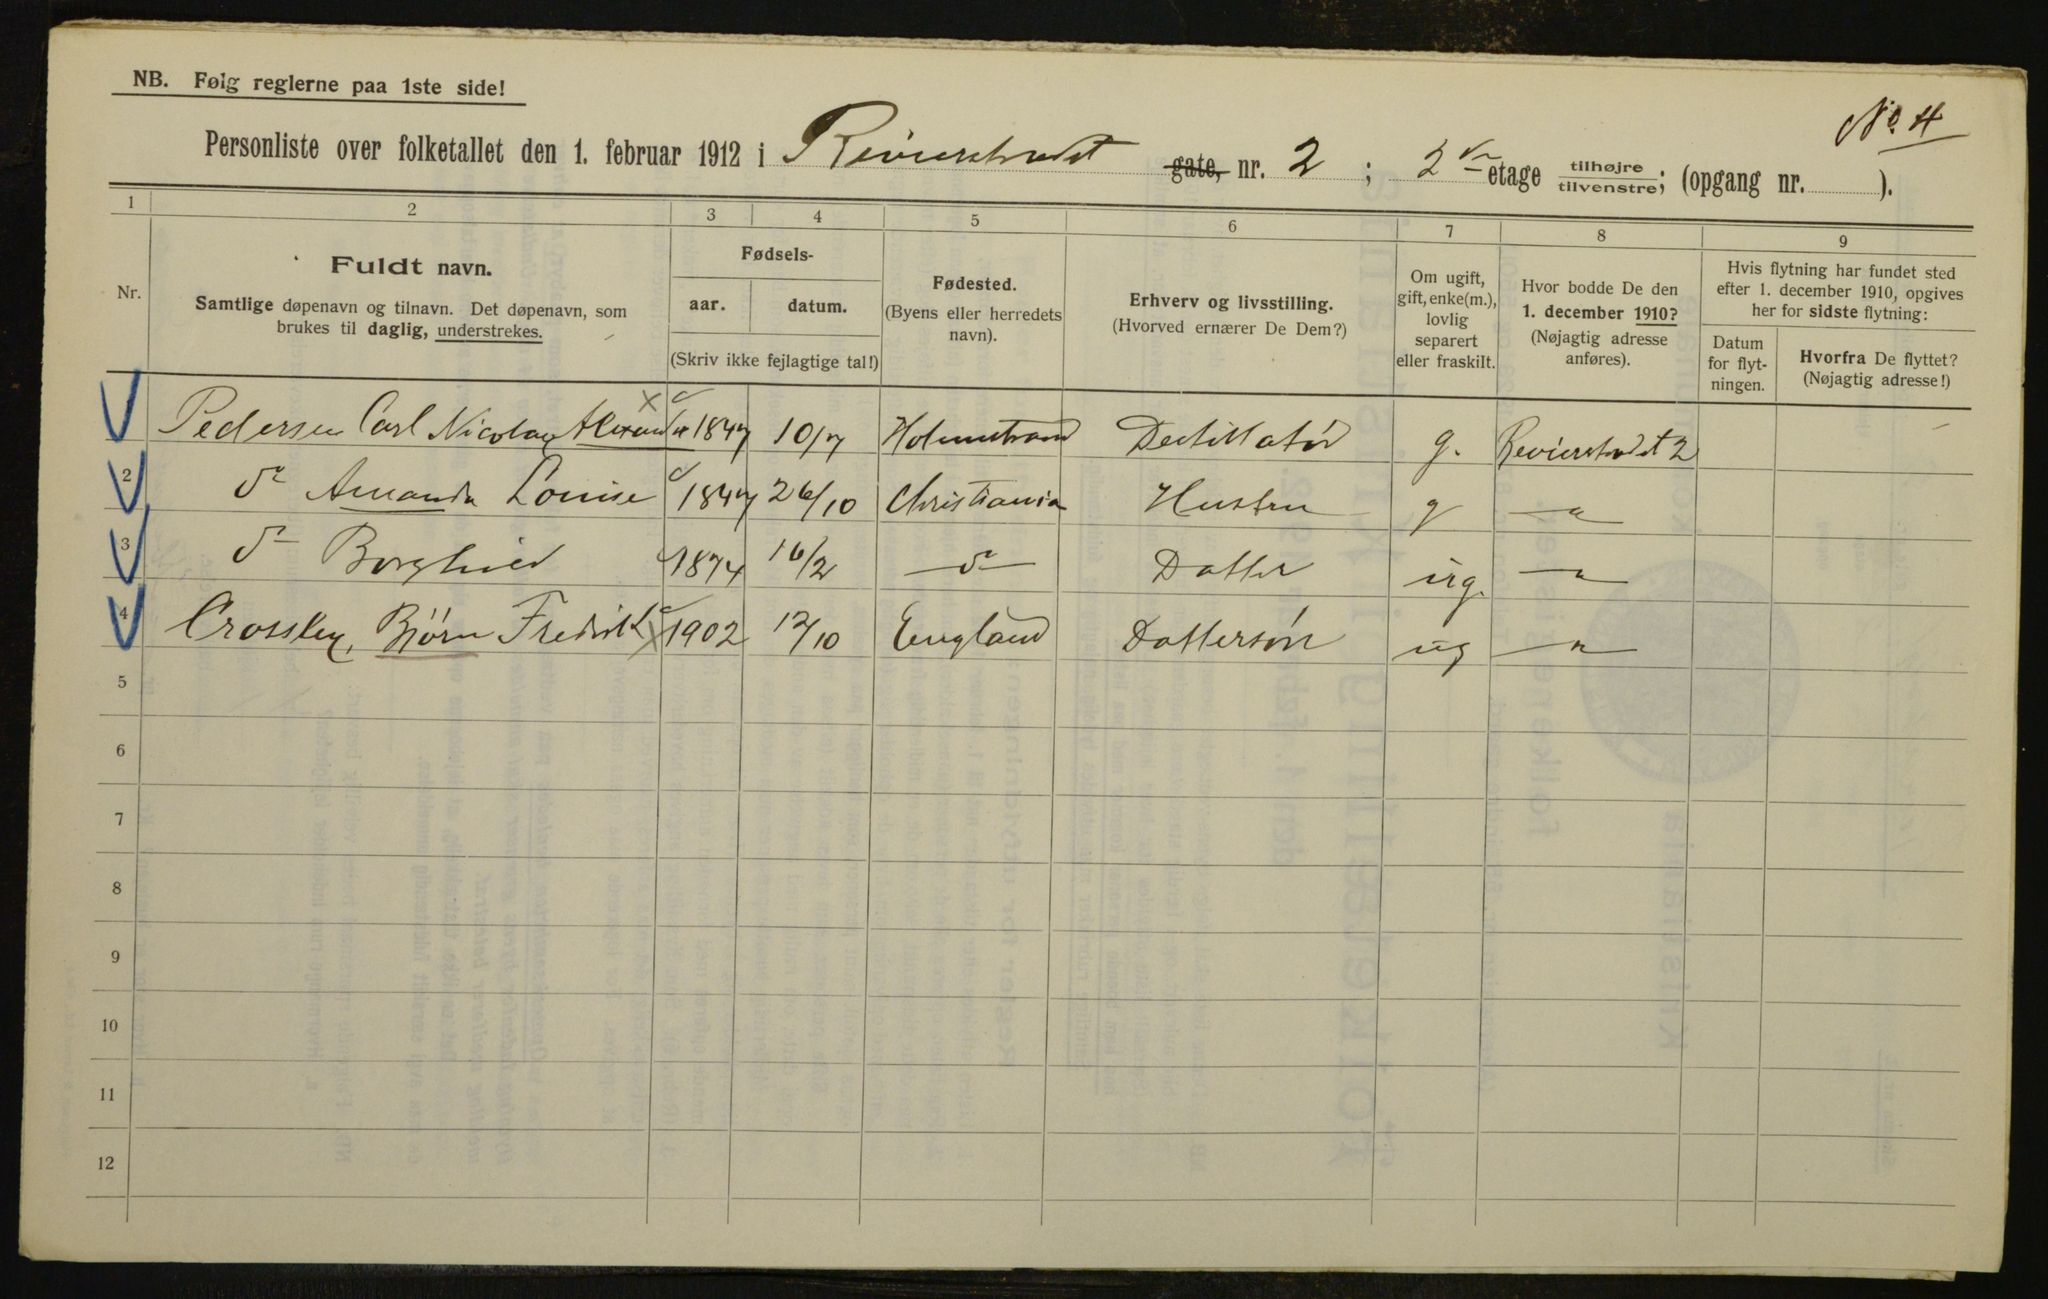 NB. Følg reglerne paa 1ste side!
No. 4
Personliste over folketallet den 1. februar 1912 i Revierstredet gate, nr. 2 ; 2den etage tilhøjre/tilvenstre; (opgang nr. ).
1 2 3 4 5 6 7 8 9
Nr.
Fuldt navn.
Samtlige døpenavn og tilnavn. Det døpenavn, som
brukes til daglig, understrekes.
Fødsels-
aar. datum.
(Skriv ikke fejlagtige tal!)
Fødested.
(Byens eller herredets
navn).
Erhverv og livsstilling.
(Hvorved ernærer De Dem?)
Om ugift,
gift, enke(m.),
lovlig
separert
eller fraskilt.
Hvor bodde De den
1. december 1910?
(Nøjagtig adresse
anføres).
Hvis flytning har fundet sted
efter 1. december 1910, opgives
her for sidste flytning:
Datum
for flyt-
ningen.
Hvorfra De flyttet?
(Nøjagtig adresse!)
Pedersen Carl Nicolay Alexander 1847 10/7 Holmestrand Destillatør g. Revierstredet 2
2 do Amanda Louise 1847 26/10 Christiania Hustru g — " —
3 do Borghild 1874 16/2 — do — Datter ug. — " —
4 Crossley, Bjørn Fredrik 1902 12/10 England Dattersøn ug — " —
5
6
7
8
9
10
11
12